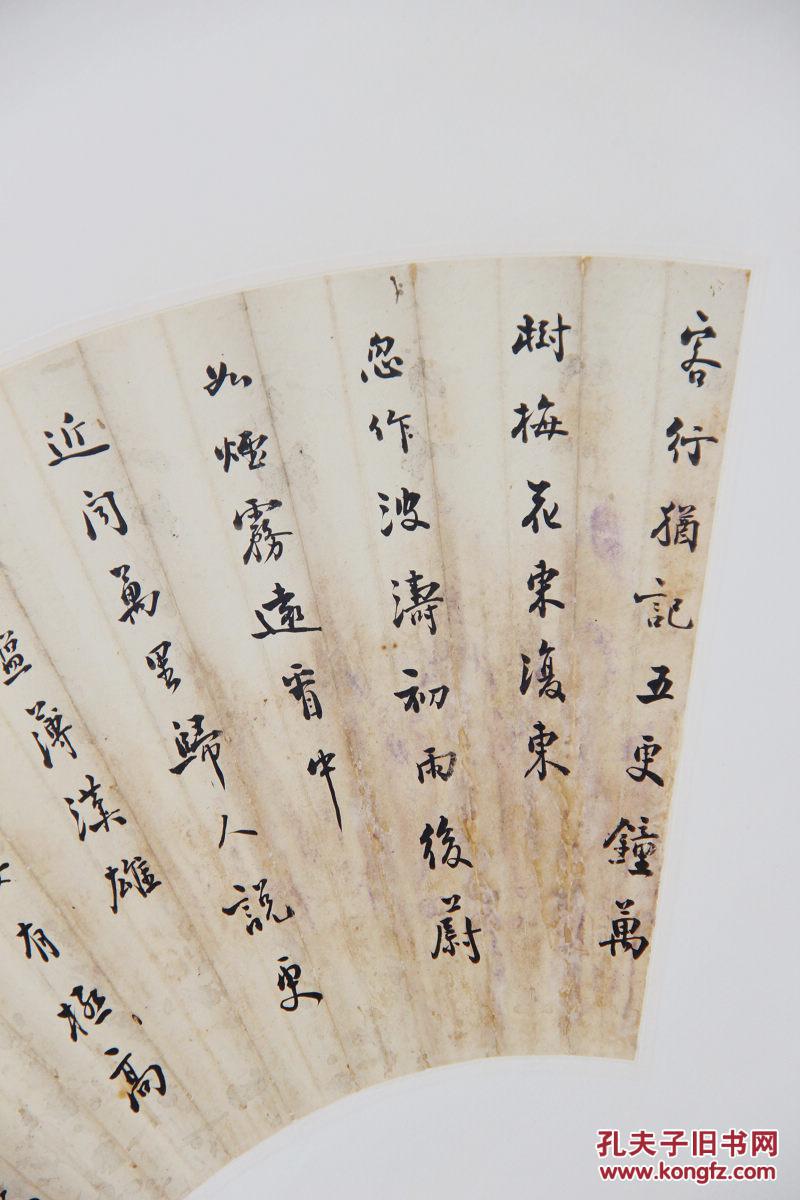 客行猶記五更鐘萬
樹梅花東復東
忽作波濤初雨後蔚
如煙霧遠看中
近聞萬里歸人說更
薄漢雄
有極高
孔夫子旧书网
www.kongfz.com